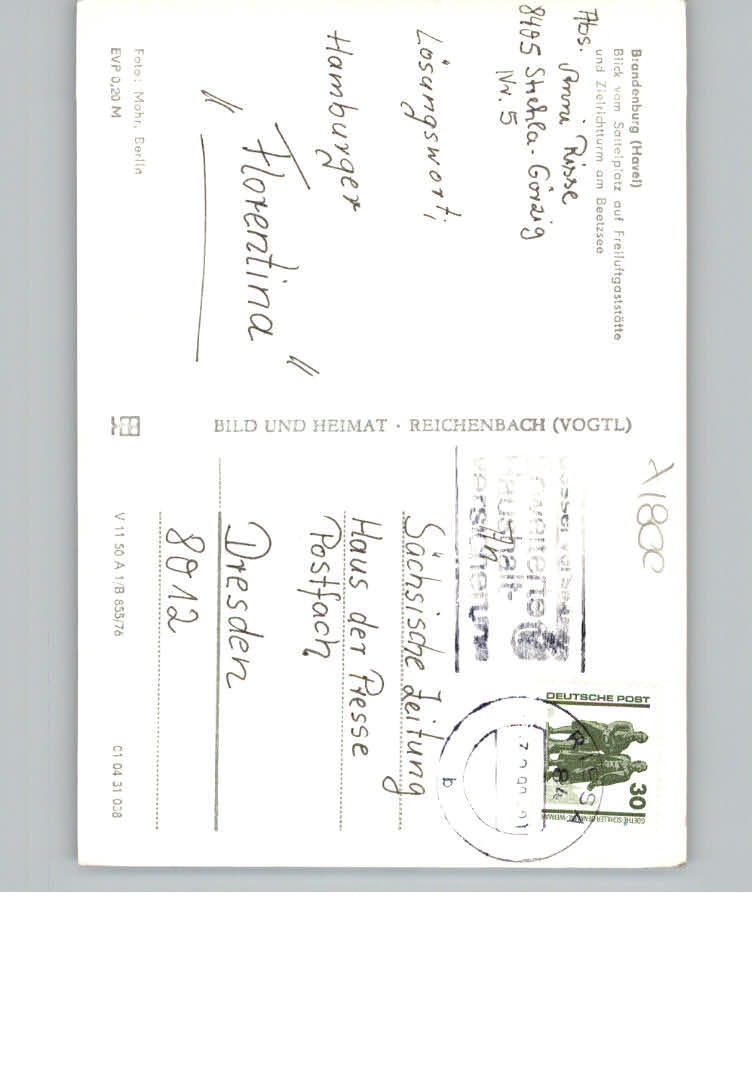 Brandenburg (Havel)
Blick vom Sattelplatz auf Freiluftgaststätte
und Zielrichtturm am Beetzsee
Abs. Anni Risse
8405 Strehla-Görzig
Nr. 5
Lösungswort:
Hamburger
"Florentina"
Foto: Mohr, Berlin
EVP 0,20 M
BILD UND HEIMAT · REICHENBACH (VOGTL)
X1800
Haushalt-
versicherung
DEUTSCHE POST
30
GOETHE-SCHILLER-DENKMAL-WEIMAR
RIESA
84
b
An
Sächsische Zeitung
Haus der Presse
Postfach
Dresden
8012
V 11 50 A 1/B 855/76
C1 04 31 038